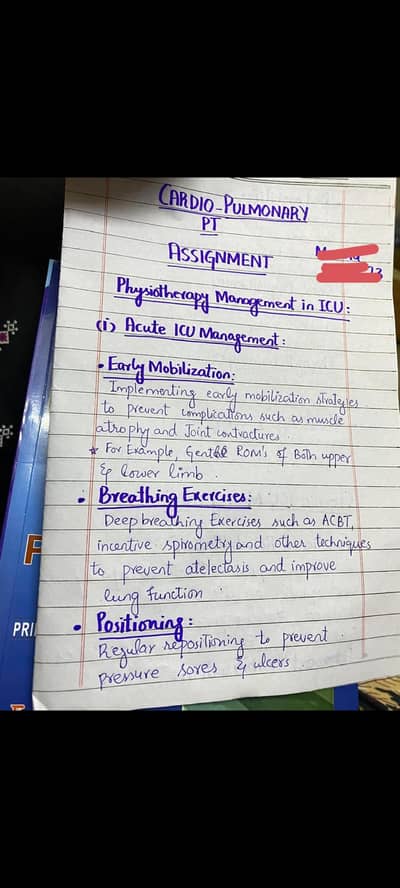 CARDIO-PULMONARY
PT
ASSIGNMENT
Physiotherapy Management in ICU:
(i) Acute ICU Management:
• Early Mobilization:
Implementing early mobilization strategies
to prevent complications such as muscle
atrophy and Joint contractures.
* For Example, Gentle ROM's of Both upper
& lower limb.
• Breathing Exercises:
Deep breathing Exercises such as ACBT,
incentive spirometry and other techniques
to prevent atelectasis and improve
lung function
• Positioning:
Regular repositioning to prevent
pressure sores & ulcers.
F
PRI